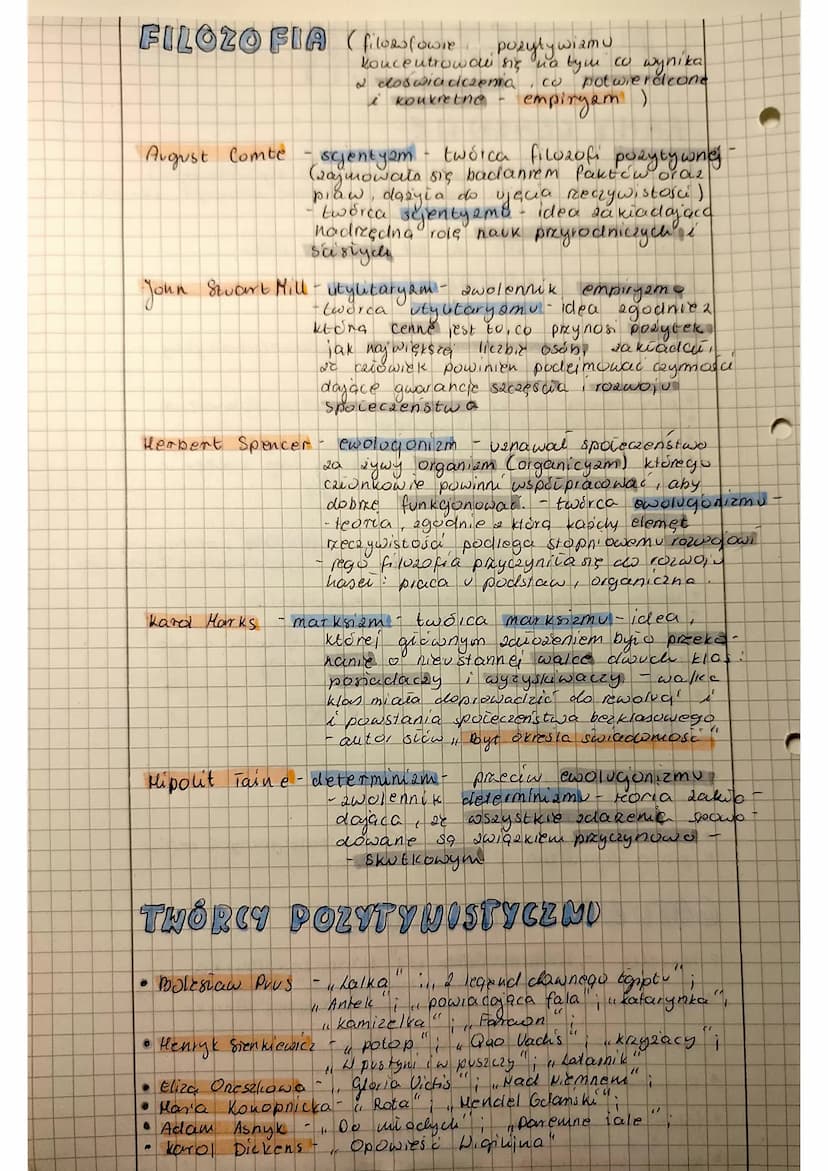 FILOZOFIA (filozofowie pozytywizmu
koncentrowali się na tym co wynika
z doświadczenia, co potwierdzone
i konkretne - empiryzm)
August Comte - scjentyzm - twórca filozofi pozytywnej -
(zajmowała się badaniem faktów oraz
praw, dążyła do ujęcia rzeczywistości)
- twórca scjentyzmu - idea zakładająca
nadrzędną rolę nauk przyrodniczych i
ścisłych
John Stuart Mill - utylitaryzm - zwolennik empiryzmu
- twórca utylitaryzmu - idea zgodnie z
którą cenne jest to, co przynosi pożytek
jak największej liczbie osób, zakładał,
że człowiek powinien podejmować czynności
dające gwarancje szczęścia i rozwoju
społeczeństwa
Herbert Spencer - ewolucjonizm - uznawał społeczeństwo
za żywy organizm (organicyzm) którego
członkowie powinni współpracować, aby
dobrze funkcjonować. - twórca ewolucjonizmu -
- teoria, zgodnie z którą każdy elemęt
rzeczywistości podlega stopniowemu rozwojowi
- jego filozofia przyczyniła się do rozwoju
haseł: praca u podstaw, organiczna.
Karol Marks - marksizm - twórca marksizmu - idea,
której głównym założeniem było przeko-
nanie o nieustannej walce dwuch klas:
posiadaczy i wyzyskiwaczy - walka
klas miała doprowadzić do rewolucji i
i powstania społeczeństwa bezklasowego
- autor słów "Byt określa świadomość"
Hipolit Taine - determinizm - przeciw ewolucjonizmu,
- zwolennik determinizmu - teoria zakła-
dająca, że wszystkie zdarzenia spowo-
dowane są związkiem przyczynowo -
- skutkowym
TWÓRCY POZYTYWISTYCZNI
• Bolesław Prus - "Lalka"; "Z legend dawnego Egiptu";
"Antek"; "powiadająca fala"; "katarynka",
"kamizelka"; "Faraon";
• Henryk Sienkiewicz - "potop"; "Quo Vadis"; "krzyżacy";
"W pustyni i w puszczy"; "Latarnik"
• Eliza Orzeszkowa - "Gloria Victis"; "Nad Niemnem";
• Maria Konopnicka - "Rota"; "Mendel Gdański";
• Adam Asnyk - "Do młodych"; "Daremne żale";
• Karol Dickens - "Opowieść Wigilijna"